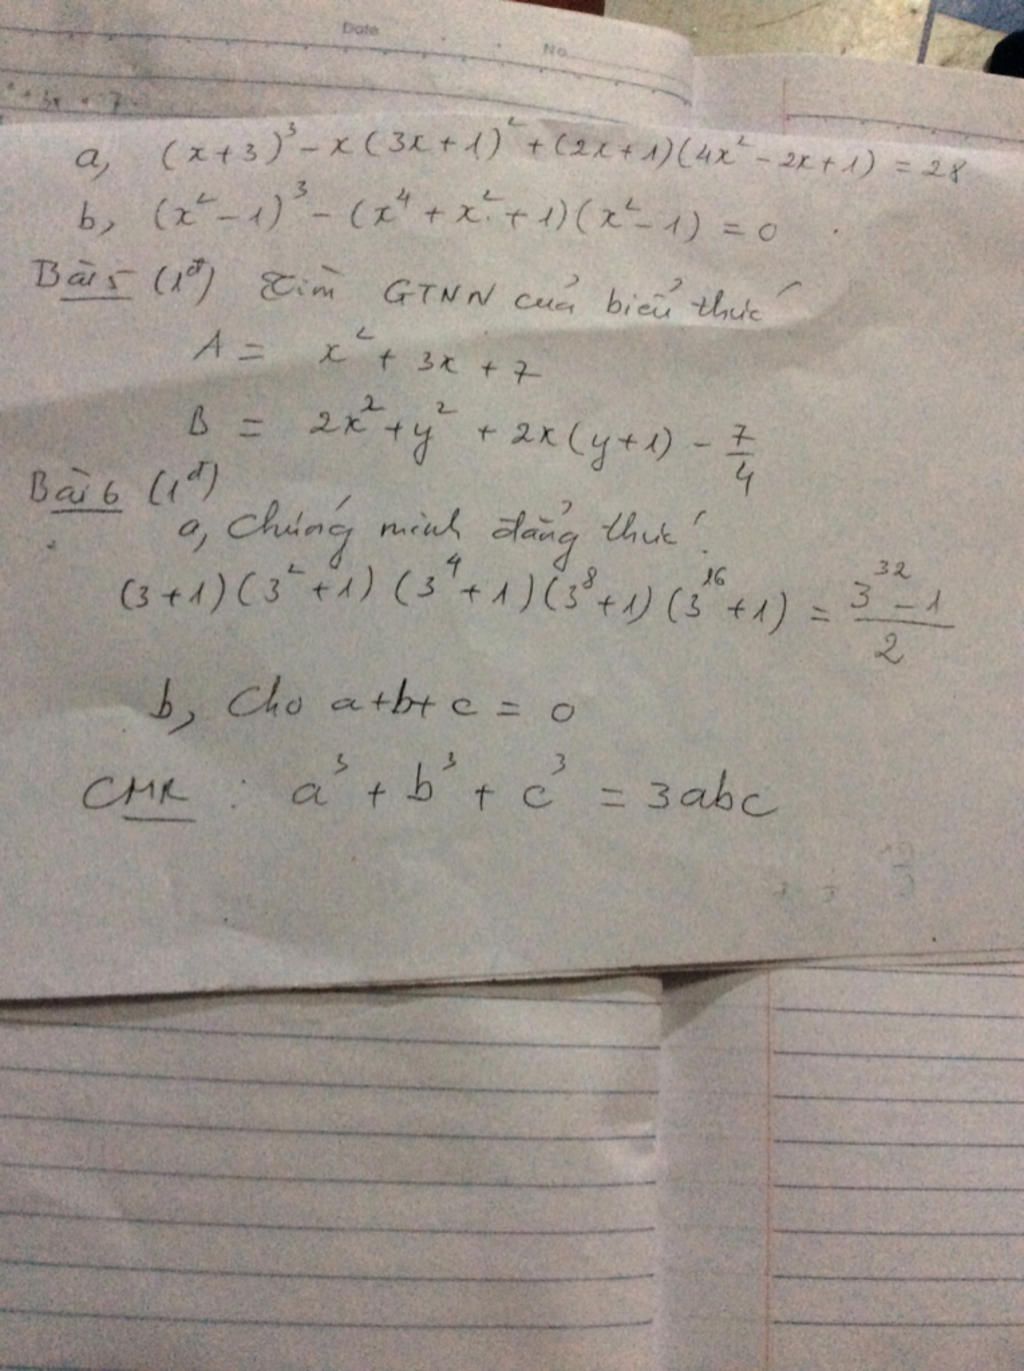 Date
No
+ 3x + 7
a, (x+3)³ - x(3x+1)² + (2x+1)(4x² - 2x + 1) = 28
b, (x² - 1)³ - (x⁴ + x² + 1)(x² - 1) = 0
Bài 5 (1đ) Tìm GTNN của biểu thức
A = x² + 3x + 7
B = 2x² + y² + 2x(y+1) - 7/4
Bài 6 (1đ)
a, Chứng minh đẳng thức.
(3+1)(3²+1)(3⁴+1)(3⁸+1)(3¹⁶+1) = (3³² - 1)/2
b, Cho a+b+c = 0
CMR : a³ + b³ + c³ = 3abc